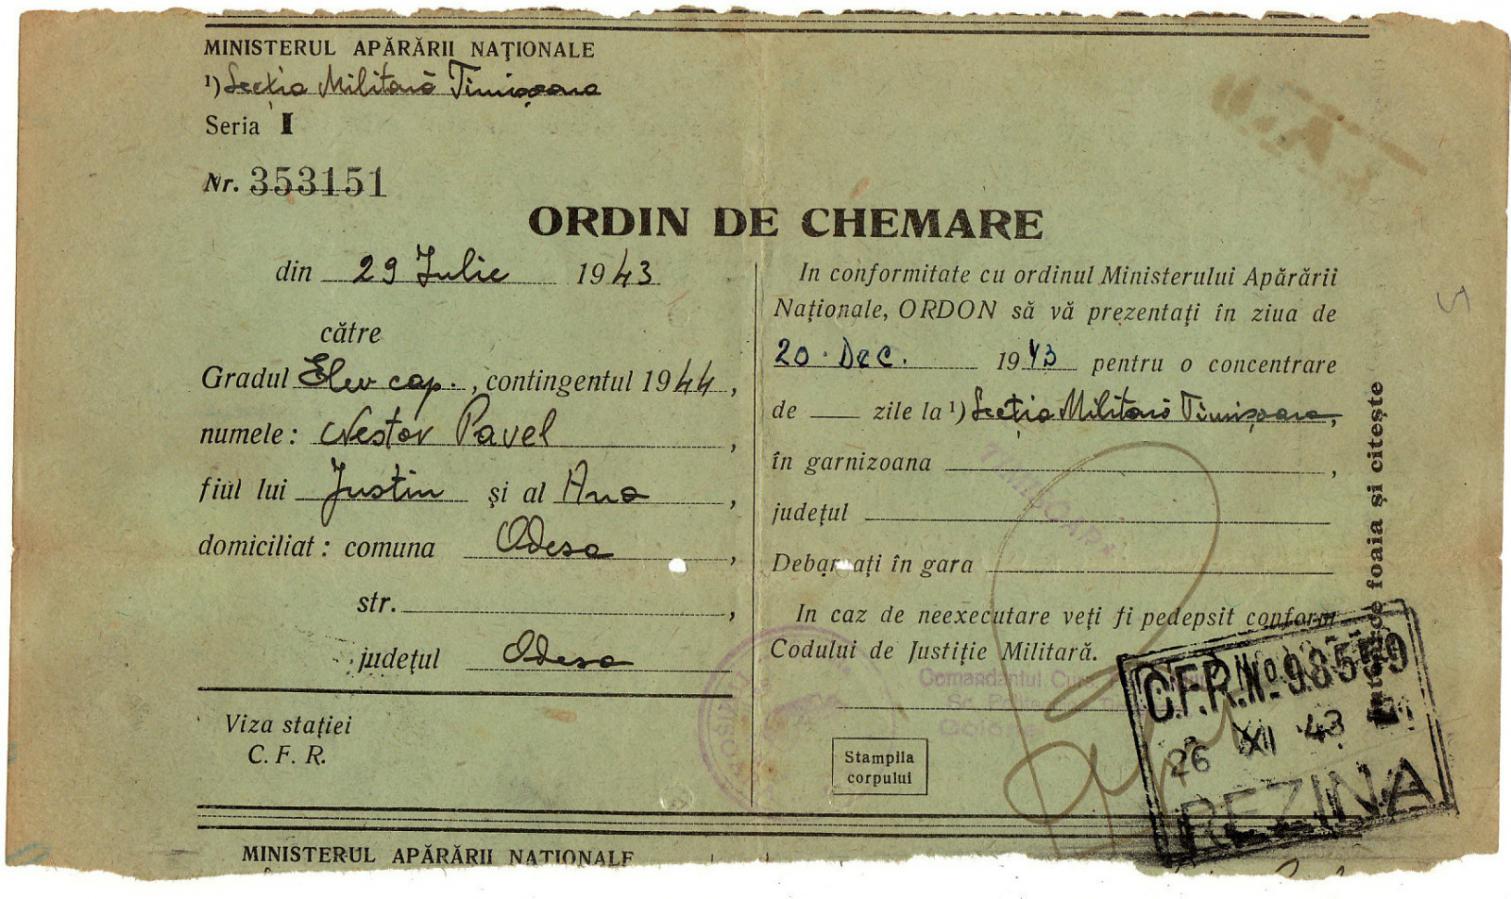 MINISTERUL APĂRĂRII NAŢIONALE
¹) Secția Militară Timișoara
Seria I
Nr. 353151
ORDIN DE CHEMARE
din 29 Iulie 1943
către
Gradul Elev cap. , contingentul 1944,
numele: Nestor Pavel ,
fiul lui Justin și al Ana ,
domiciliat: comuna Odesa ,
str. ,
județul Odesa
Viza stației
C. F. R.
In conformitate cu ordinul Ministerului Apărării
Naționale, ORDON să vă prezentați în ziua de
20. Dec. 1943 pentru o concentrare
de — zile la ¹) Secția Militară Timișoara,
în garnizoana ,
județul
Debarcați în gara
In caz de neexecutare veți fi pedepsit conform
Codului de Justiție Militară.
TIMIȘOARA
Comandantul
Stampila
corpului
foaia și citește
C.F.R. No 98559
26 XII 43
REZINA
MINISTERUL APĂRĂRII NAȚIONALE